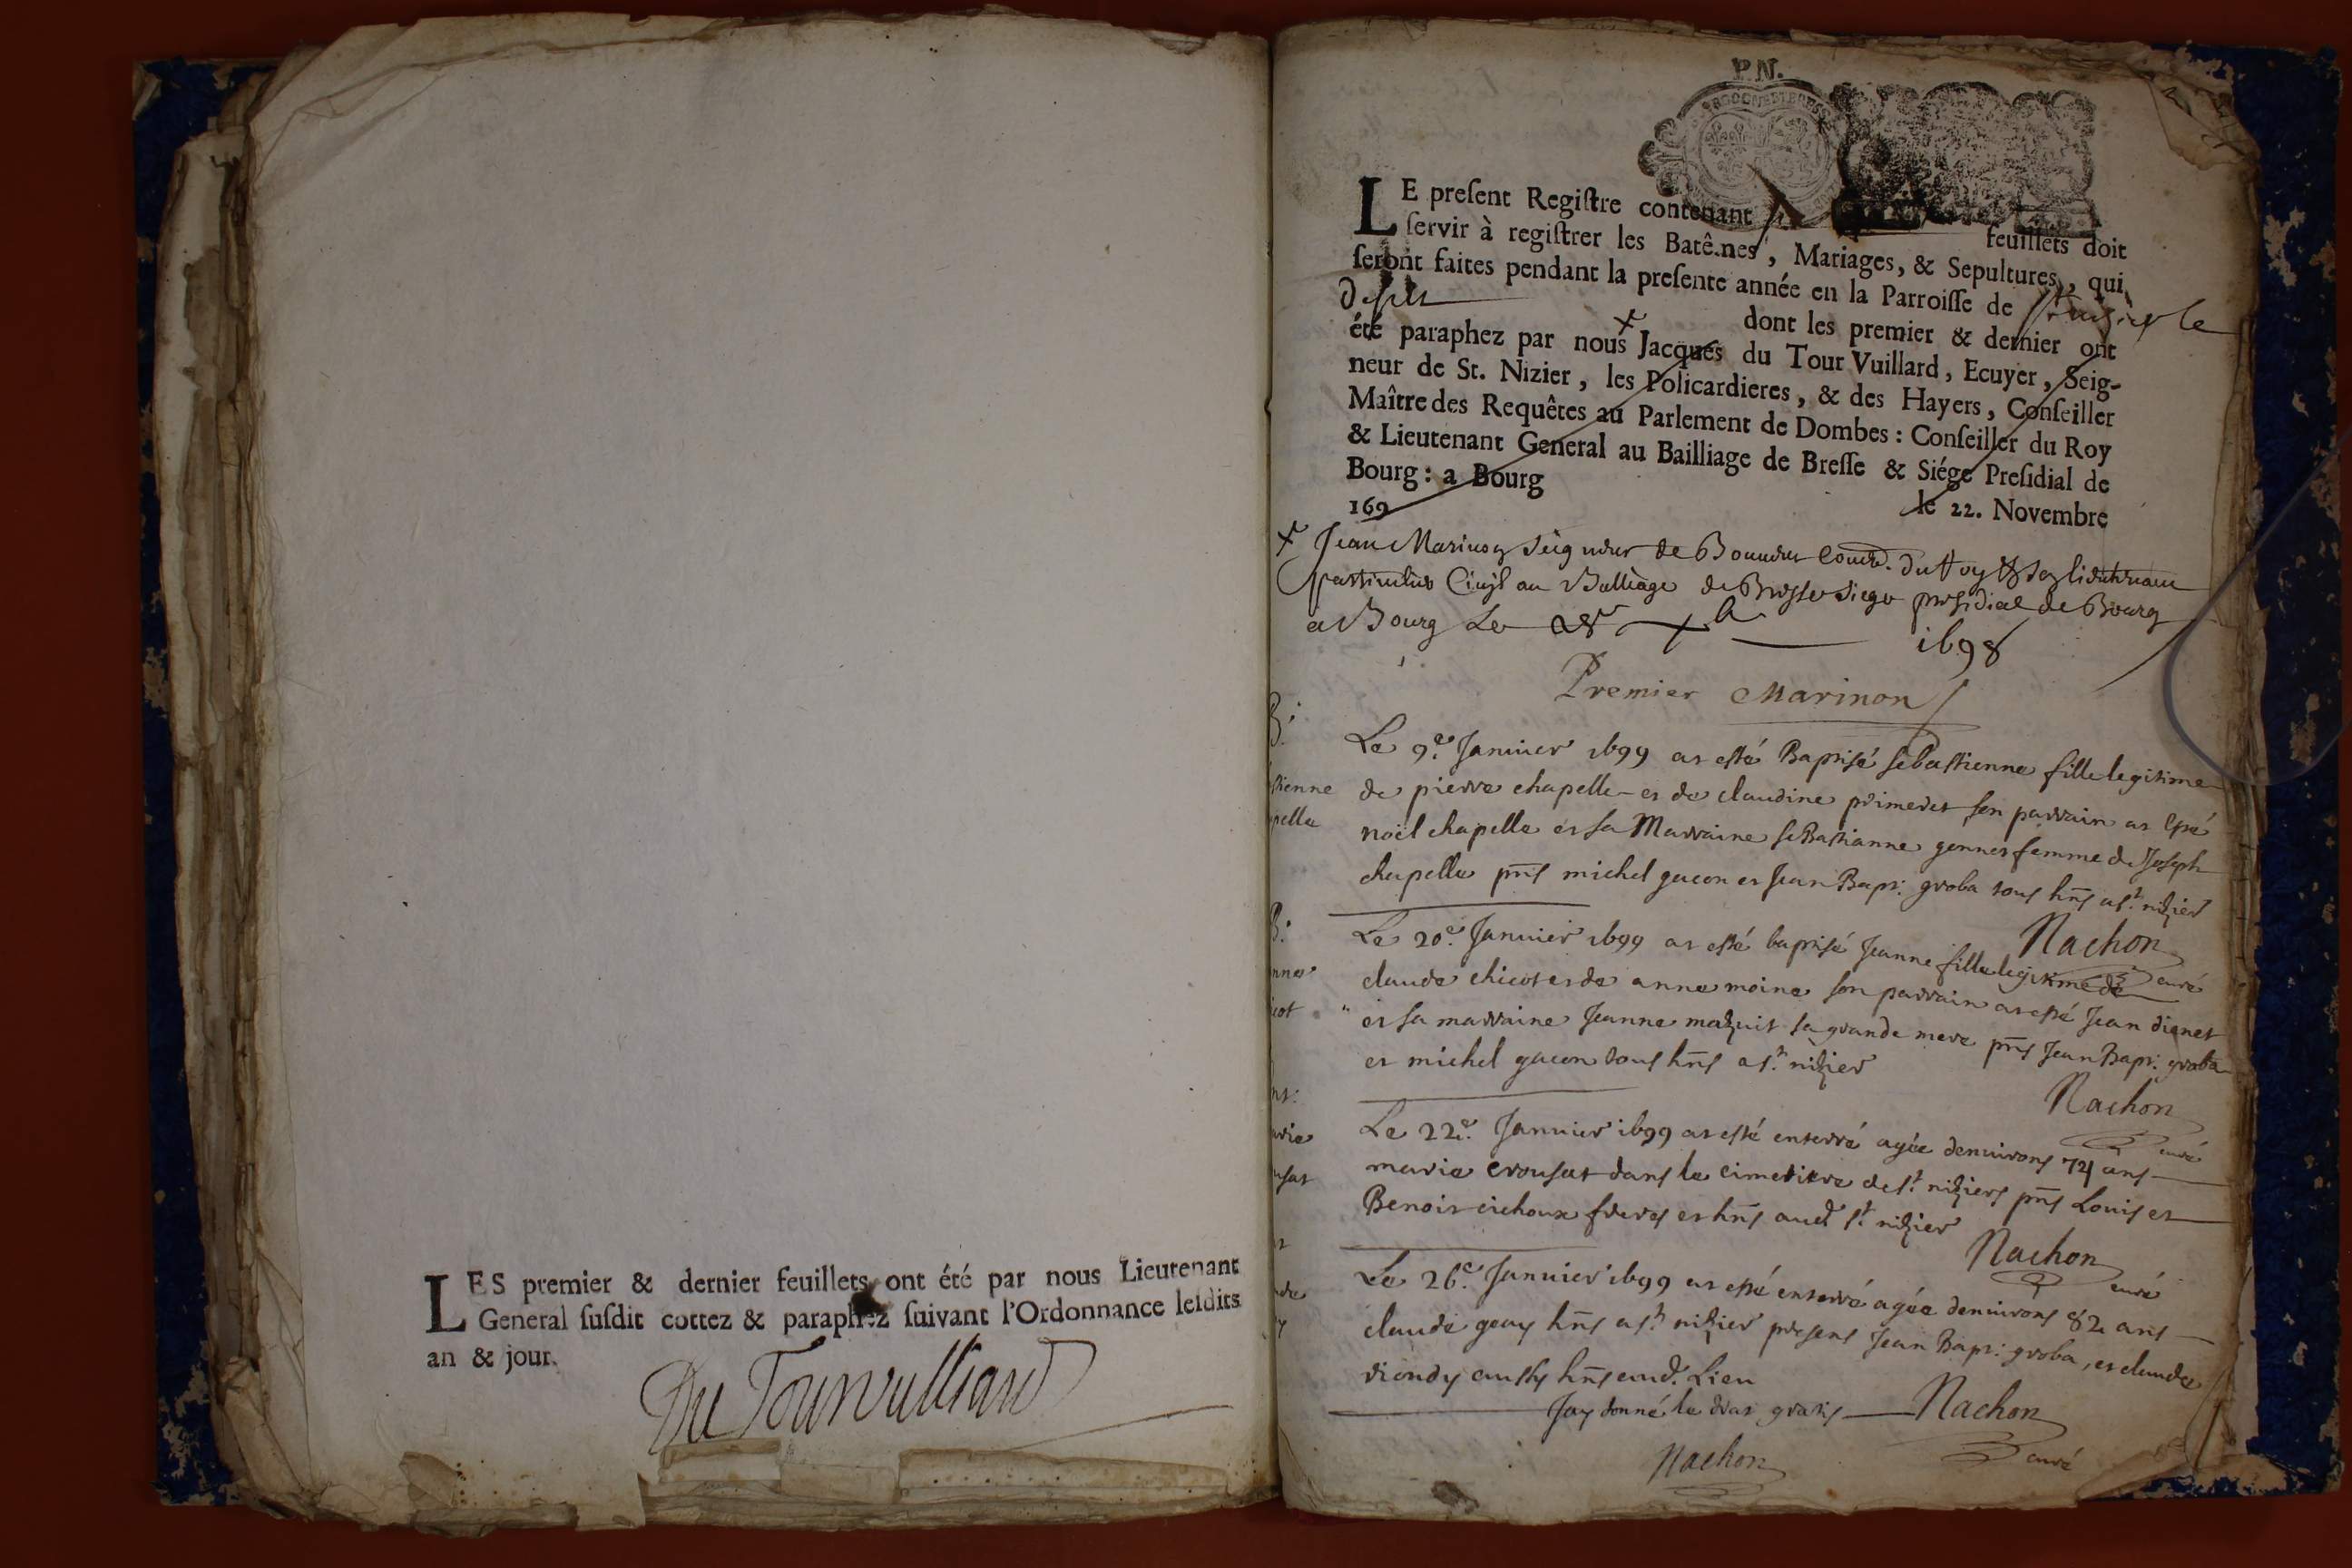 LES premier & dernier feuillets ont été par nous Lieutenant
General ſuſdit cottez & paraphez ſuivant l'Ordonnance leſdits
an & jour.
Du Tourvulliard
P.N.
LE preſent Regiſtre contenant feuillets doit
ſervir à regiſtrer les Batêmes, Mariages, & Sepultures, qui
ſeront faites pendant la preſente année en la Parroiſſe de St nizier le
desert dont les premier & dernier ont
été paraphez par nous Jacques du Tour Vuillard, Ecuyer, Seig-
neur de St. Nizier, les Policardieres, & des Hayers, Conſeiller
Maître des Requêtes au Parlement de Dombes : Conſeiller du Roy
& Lieutenant General au Bailliage de Breſſe & Siége Preſidial de
Bourg : a Bourg le 22. Novembre
169
Jean Marinon Seigneur de Conser. du Roy
particulier Civil au Balliage de Bresse Siege presidial de Bourg
a Bourg Le 1698
Premier Marinon
B:
tienne
pelle
Le 9.e Januier 1699 at esté Baptisé sebastienne fille legitime
de pierre chapelle et de claudine son parrain at esté
noël chapelle et sa Marraine seBastianne femme de Joseph
chapelle pn̄s michel gacon et Jean Bapt: groba tous hn̄s a st. nizier
Nachon
curé
B:
nne
icot
Le 20.e Januier 1699 at esté baptisé Jeanne fille legitime de
claude chicot et de anne moine son parrain at esté Jean
et sa marraine Jeanne mazuit sa grande mere pn̄s Jean Bapt: groba
et michel gacon tous hn̄s a st. nizier
Nachon
curé
nt:
arie
usat
Le 22.e Januier 1699 at esté enterré agée denuirons 74 ans
marie crousat dans le cimetiere de st. niziers pn̄s Louis et
Benoit cichoux freres et hn̄s aud. st. nizier
Nachon
curé
Le 26.e Januier 1699 at esté enterré agée denuirons 82 ans
claude geay hn̄s a st. nizier presens Jean Bapt: groba, et claude
aussy hn̄s aud. Lieu
Jay donné le drat gratis Nachon
curé
Nachon